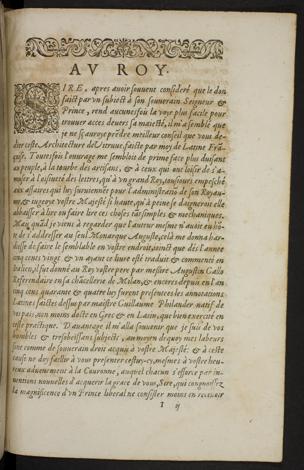 AV ROY.
SIRE, apres auoir souuent consideré que le don
faict par vn subiect à son souuerain Seigneur &
Prince, rend aucunesfois la voye plus facile pour
trouuer acces deuers sa maiesté, il m'a semblé que
je ne sçauroys prédre meilleur conseil que vous de-
dier ceste Architecture de Vitruue faicte par moy de Latine Frã-
çoise. Toutesfois l'ouurage me semble de prime face plus duisant
au peuple, à la tourbe des artisans, & à ceux qui ont loisir de s'a-
muser à la suitte des lettres, qu'à vn grand Roy, tousiours empesché
aux affaires qui luy suruiennẽt pour l'administratiõ de son Royau-
me & iugeoye vostre Majesté si haute, qu'à peine se daigneroit elle
abbaisser à lire ou faire lire ces choses tãt simples & mechaniques.
May quãd je viens à regarder que l'auteur mesme n'auoit eu hõ-
te de l'addresser au seul Monarque Auguste, celà me donna har-
diesse de faire le semblable en vostre endroit, ioinct que dés l'année
cinq cens vingt & vn ayant ce liure esté traduit & commenté en
Italien, il fut donné au Roy vostre pere par messire Augustin Gallo
Referendaire en la chãcellerie de Milan, & encores depuis en l'an
cinq cens quarante & quatre luy furent presentées les annotations
Latines faictes dessus par maistre Guillaume Philander natif de
voz pais, non moins docte en Grec & en Latin, que bien exercité en
ceste practique. D'auantage il m'alla souuenir que je suis de voz
humbles & tresobeissans subiects, au moyen dequoy mes labeurs
sont comme de souuerain droit acquis à vostre Majesté: & à ceste
cause ne dey faillir à vous presenter cestuy-cy, mesmes à vostre heu-
reux aduenement à la Couronne, auquel chacun s'efforce par in-
uentions nouuelles d'acquerir la grace de vous, Sire, qui congnoissez
la magnificence d'vn Prince liberal ne consister moins en receuoir
I ij